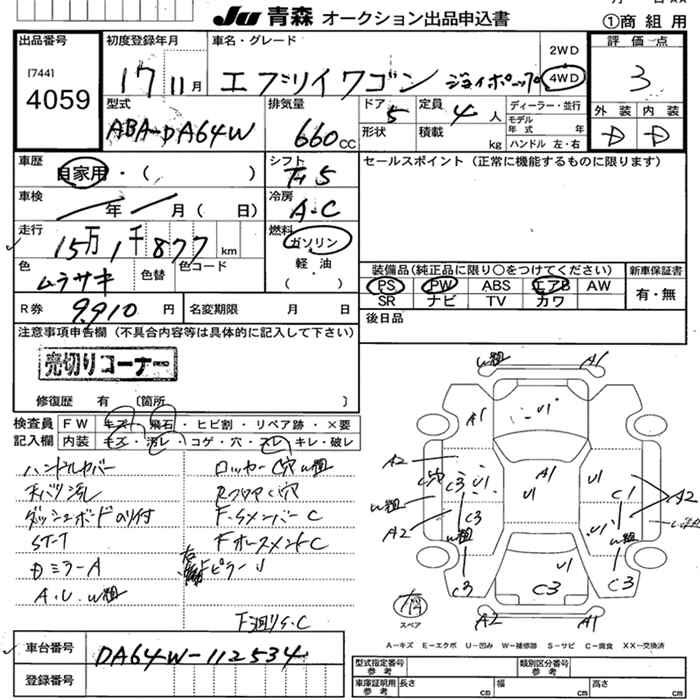 Ju 青森 オークション出品申込書
①商 組 用
出品番号
[744]
4059
初度登録年月
17 11月
車名・グレード
エブリイワゴン ジョイポップ
2WD
4WD
評価点
3
外装 内装
D D
型式
ABA-DA64W
排気量
660cc
ドア 5
形状
定員 4人
積載 kg
ディーラー・並行
モデル年式 年
ハンドル 左・右
車歴
自家用・( )
シフト
F5
セールスポイント(正常に機能するものに限ります)
車検
年 月(日)
冷房
A-C
走行
15万1千877km
燃料
ガソリン
軽・油
・( )
色
ムラサキ
色替
色コード
装備品(純正品に限り○をつけてください)
PS PW ABS エアB AW
SR ナビ TV カワ
新車保証書
有・無
R券 9,910円
名変期限 月 日
後日品
注意事項申告欄(不具合内容等は具体的に記入して下さい)
売切りコーナー
修復歴 有 〔箇所 〕
検査員記入欄
FW キズ・飛石・ヒビ割・リペア跡・×要
内装 キズ・汚レ・コゲ・穴・スレ・キレ・破レ
ハンドルカバー
天バリ汚レ
ダッシュボードのり付
ST-T
DミラーA
A.U.W粗
ロッカーC穴W粗
RフロアC穴
F.SメンバーC
FホースメントC
Fピラー U
F廻りS.C
W粗 A1
A1 U1
A2 C穴 C3 U1 A1 U1 U1 C1 A2
W粗 A2 C3 W粗 U1 W粗
C3 U1 C3 C3
A2 A1
スペア
A-キズ E-エクボ U-凹み W-補修跡 S-サビ C-腐食 XX-交換済
車台番号
DA64W-112534
登録番号
型式指定番号
参考
類別区分番号
参考
車庫証明用
参考
長さ cm 幅 cm 高さ cm